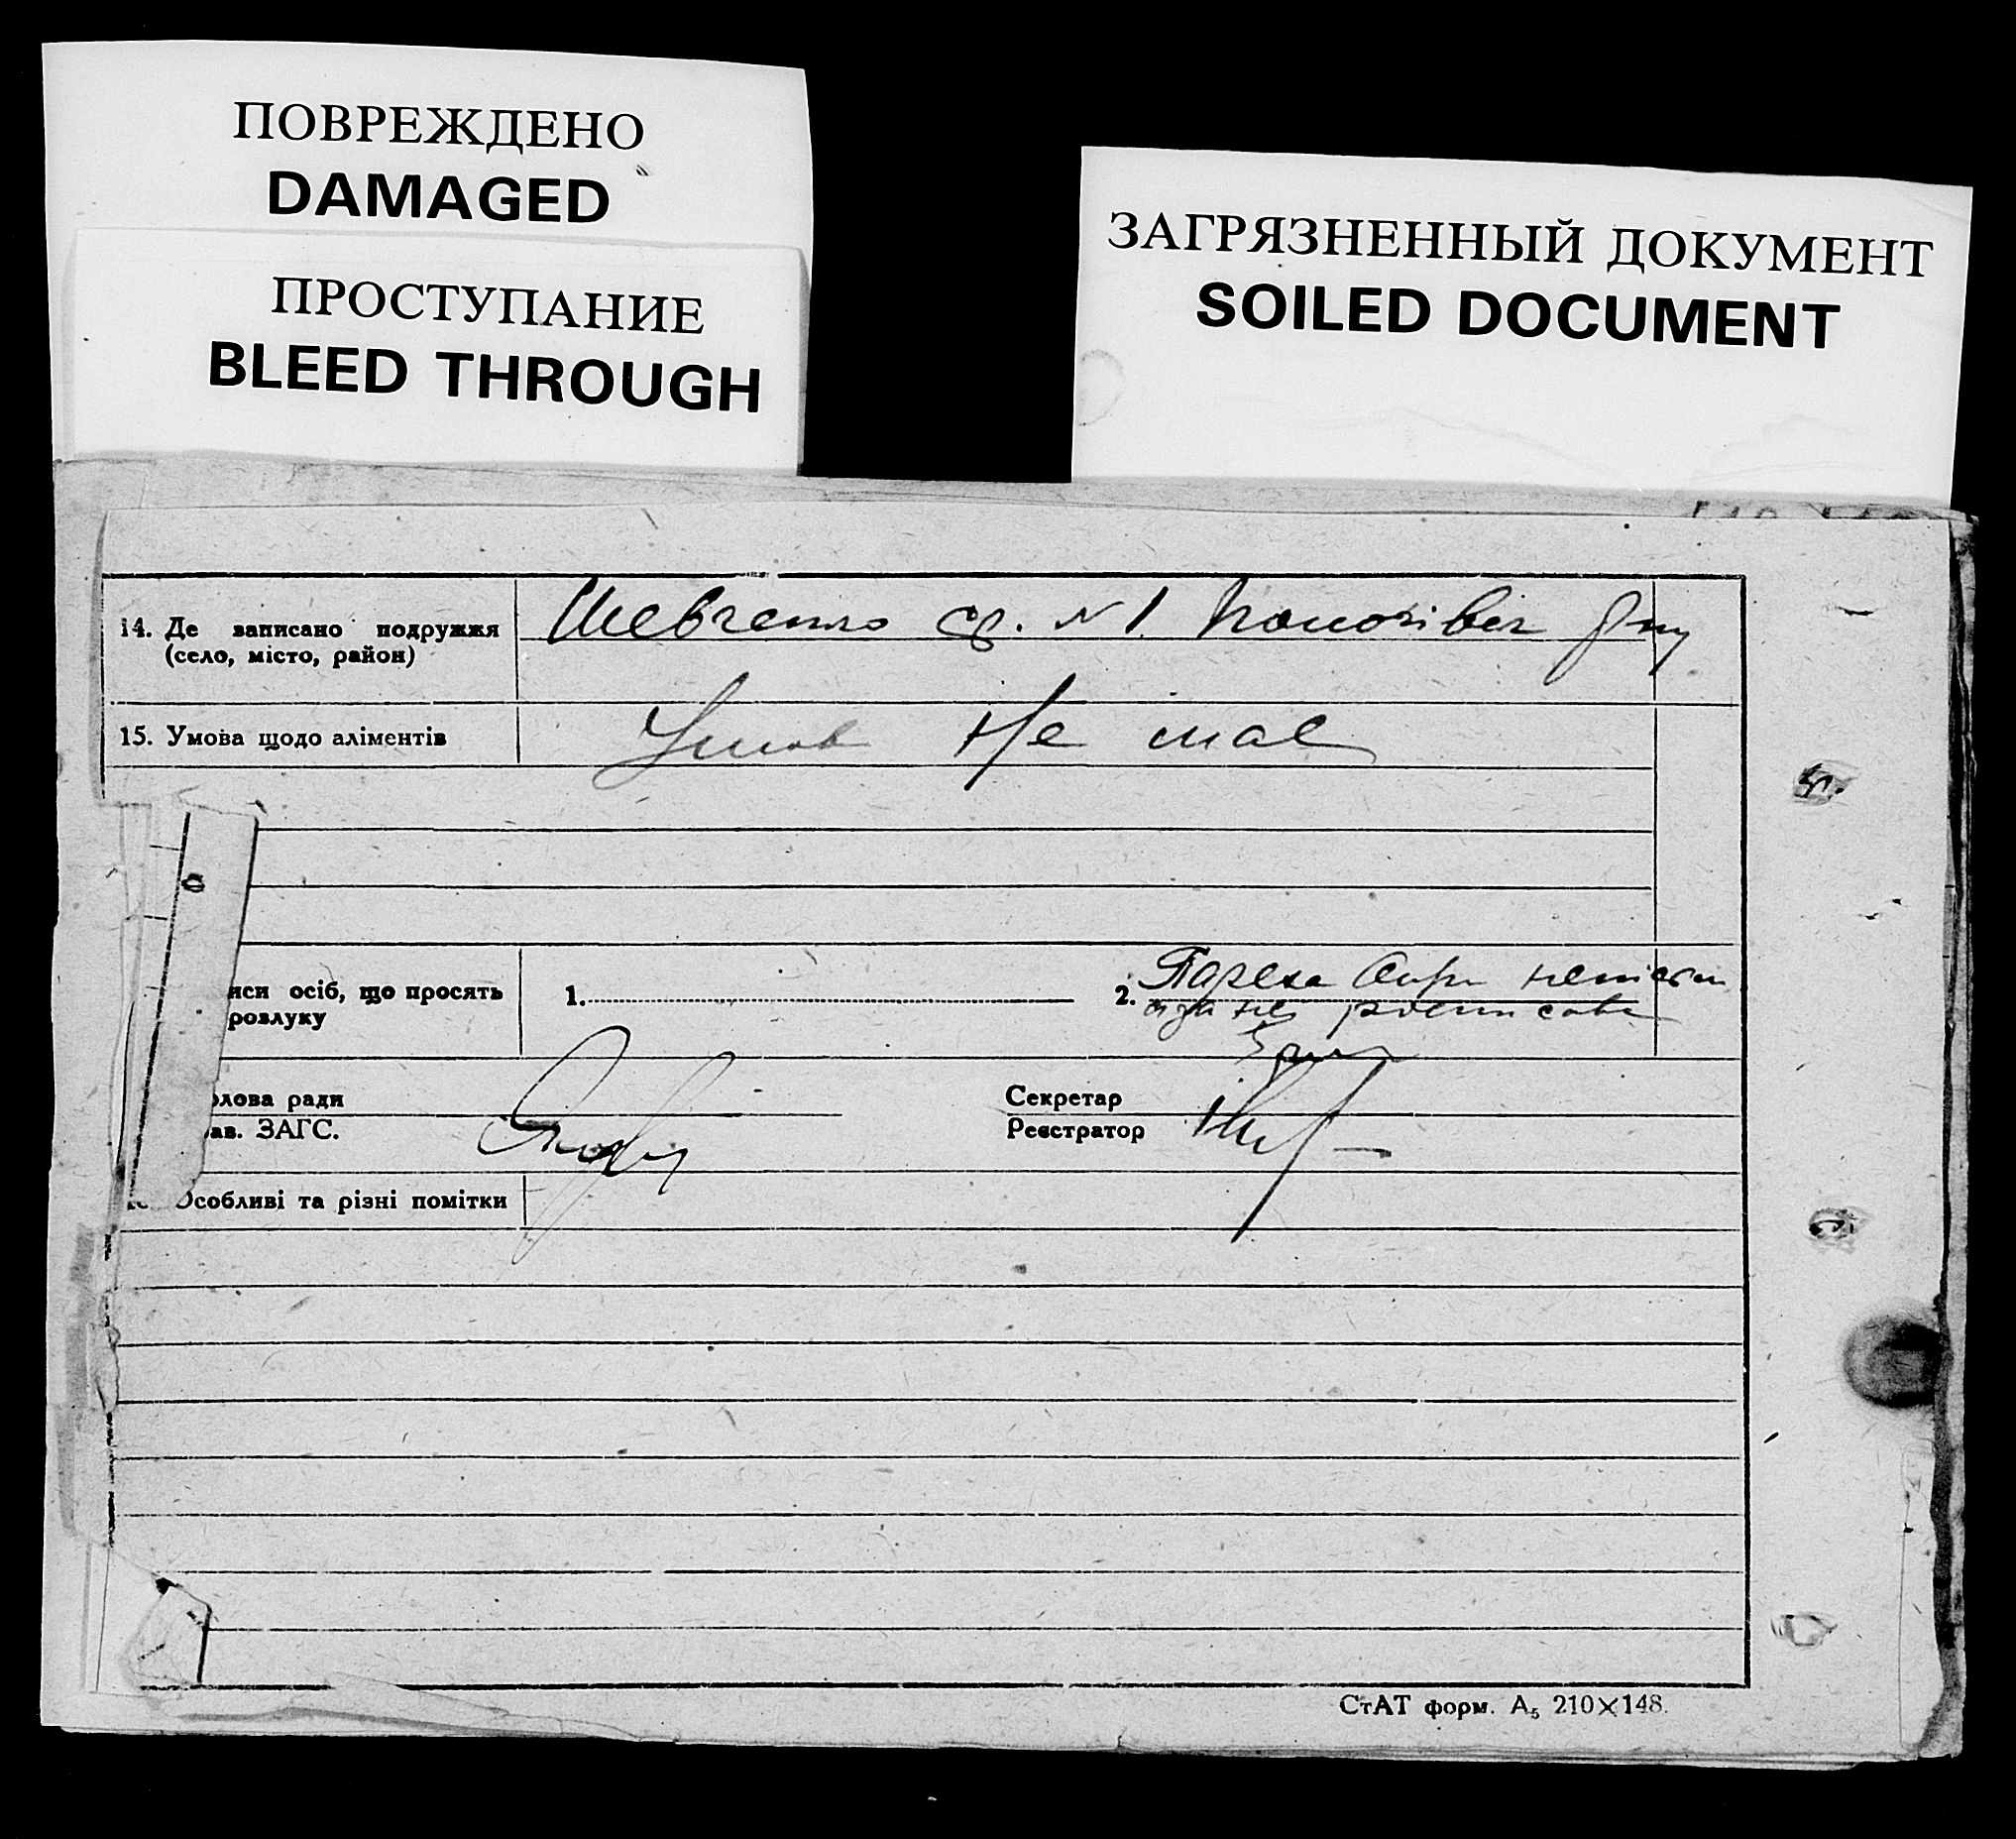 ПОВРЕЖДЕНО
DAMAGED
ПРОСТУПАНИЕ
BLEED THROUGH
ЗАГРЯЗНЕННЫЙ ДОКУМЕНТ
SOILED DOCUMENT
14. Де записано подружжя
(село, місто, район)
Шевченко ср. №1.
15. Умова щодо аліментів
Умов не має
иси осіб, що просять
розлуку
1.
2.
олова ради
ав. ЗАГС.
Секретар
Реєстратор
Особливі та різні помітки
СтАТ форм. А₅ 210×148.